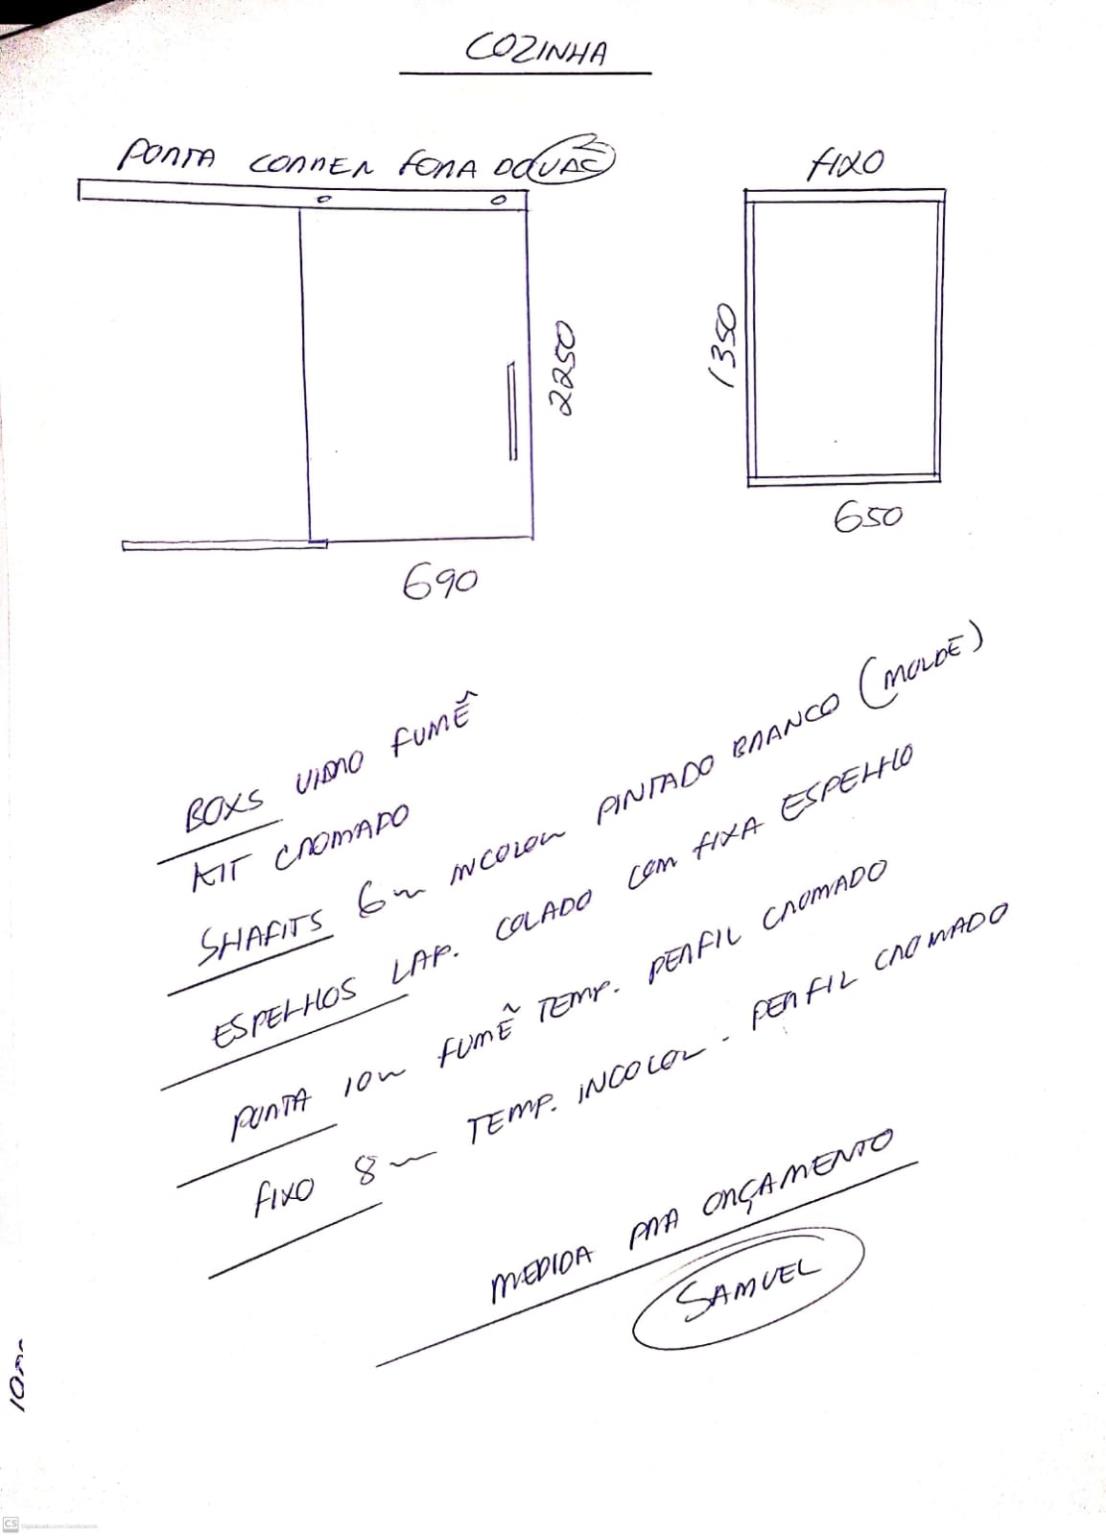 COZINHA
PORTA CORRER FORA DO VÃO
FIXO
2250
1350
690
650
BOXS VIDRO FUMÊ
KIT CROMADO
SHAFITS 6m INCOLOR PINTADO BRANCO (MOLDE)
ESPELHOS LAP. COLADO COM FIXA ESPELHO
PORTA 10m FUMÊ TEMP. PERFIL CROMADO
FIXO 8m TEMP. INCOLOR - PERFIL CROMADO
MEDIDA PRA ORÇAMENTO
SAMUEL
CS